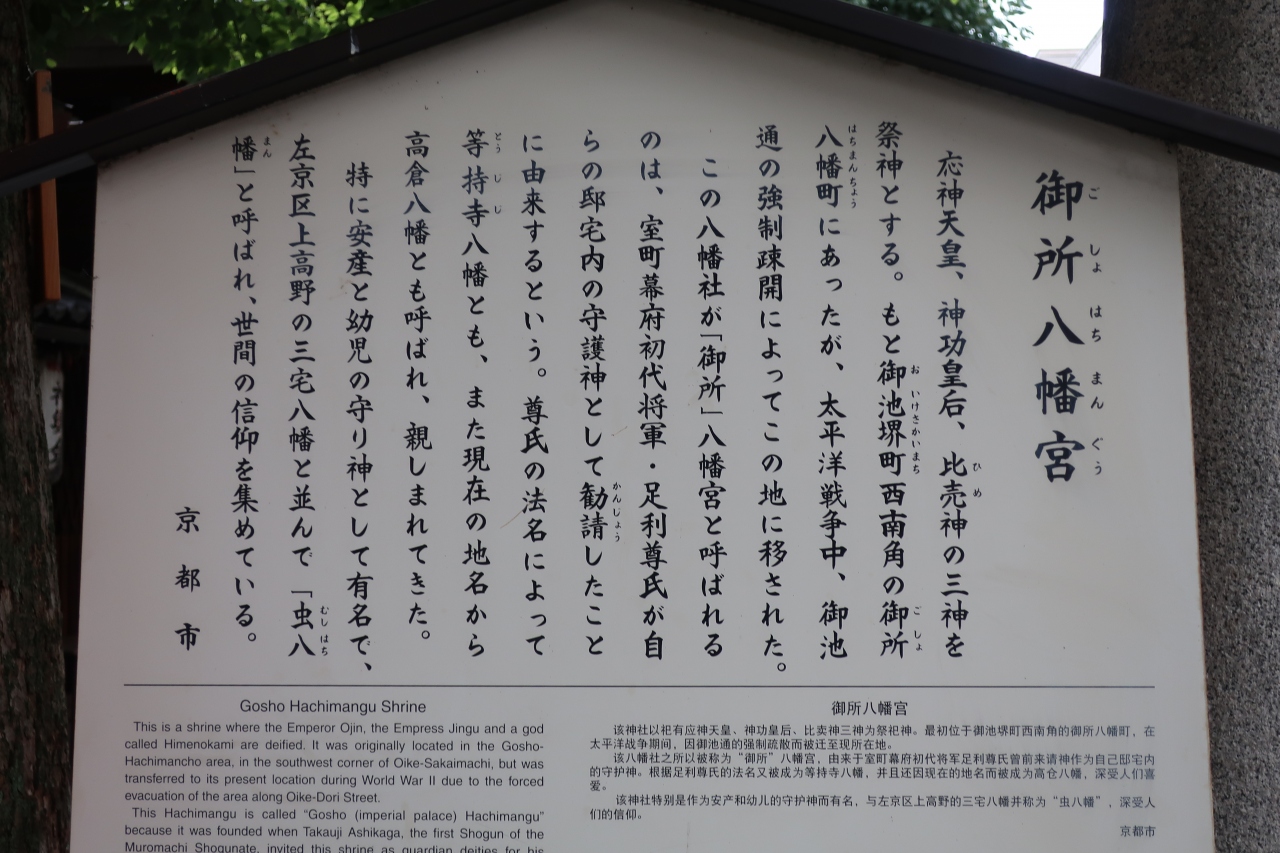 御所八幡宮
ごしょはちまんぐう
応神天皇、神功皇后、比売神の三神を
ひめ
祭神とする。もと御池堺町西南角の御所
おいけさかいまち
ごしょ
八幡町にあったが、太平洋戦争中、御池
はちまんちょう
通の強制疎開によってこの地に移された。
この八幡社が「御所」八幡宮と呼ばれる
のは、室町幕府初代将軍・足利尊氏が自
らの邸宅内の守護神として勧請したこと
かんじょう
に由来するという。尊氏の法名によって
等持寺八幡とも、また現在の地名から
とうじじ
高倉八幡とも呼ばれ、親しまれてきた。
特に安産と幼児の守り神として有名で、
左京区上高野の三宅八幡と並んで「虫八
むしはち
幡」と呼ばれ、世間の信仰を集めている。
まん
京都市
Gosho Hachimangu Shrine
This is a shrine where the Emperor Ojin, the Empress Jingu and a god
called Himenokami are deified. It was originally located in the Gosho-
Hachimancho area, in the southwest corner of Oike-Sakaimachi, but was
transferred to its present location during World War II due to the forced
evacuation of the area along Oike-Dori Street.
This Hachimangu is called "Gosho (imperial palace) Hachimangu"
because it was founded when Takauji Ashikaga, the first Shogun of the
Muromachi Shogunate, invited this shrine as guardian deities for his
御所八幡宮
该神社以祀有应神天皇、神功皇后、比卖神三神为祭祀神。最初位于御池堺町西南角的御所八幡町，在
太平洋战争期间，因御池通的强制疏散而被迁至现所在地。
该八幡社之所以被称为“御所”八幡宫，由来于室町幕府初代将军足利尊氏曾前来请神作为自己邸宅内
的守护神。根据足利尊氏的法名又被成为等持寺八幡，并且还因现在的地名而被成为高仓八幡，深受人们喜
爱。
该神社特别是作为安产和幼儿的守护神而有名，与左京区上高野的三宅八幡并称为“虫八幡”，深受人
们的信仰。
京都市